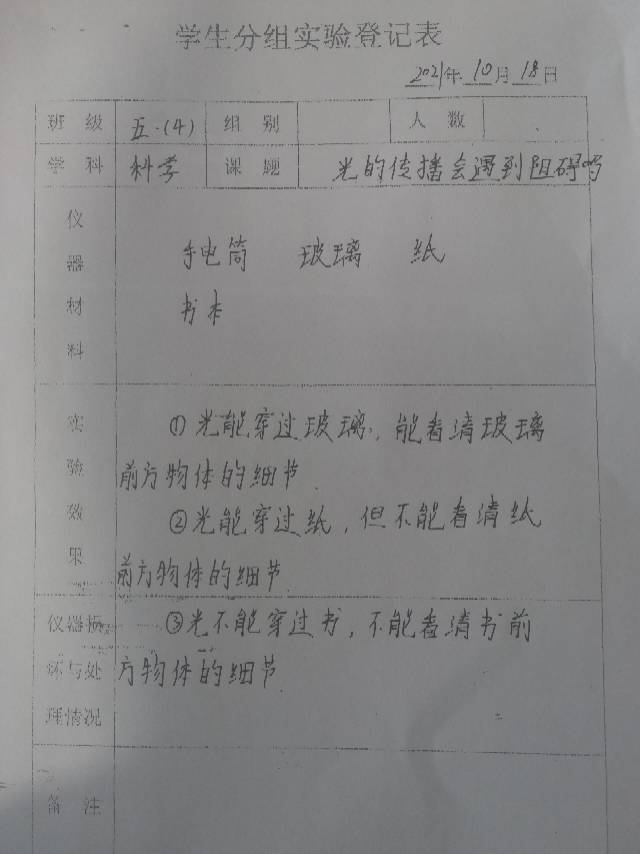 学生分组实验登记表
2021年 10月 18日
班级 五.(4) 组别 人数
学科 科学 课题 光的传播会遇到阻碍吗
仪器材料
手电筒 玻璃 纸
书本
实验效果
①光能穿过玻璃，能看清玻璃
前方物体的细节
②光能穿过纸，但不能看清纸
前方物体的细节
仪器损坏与处理情况
③光不能穿过书，不能看清书前
方物体的细节
备注